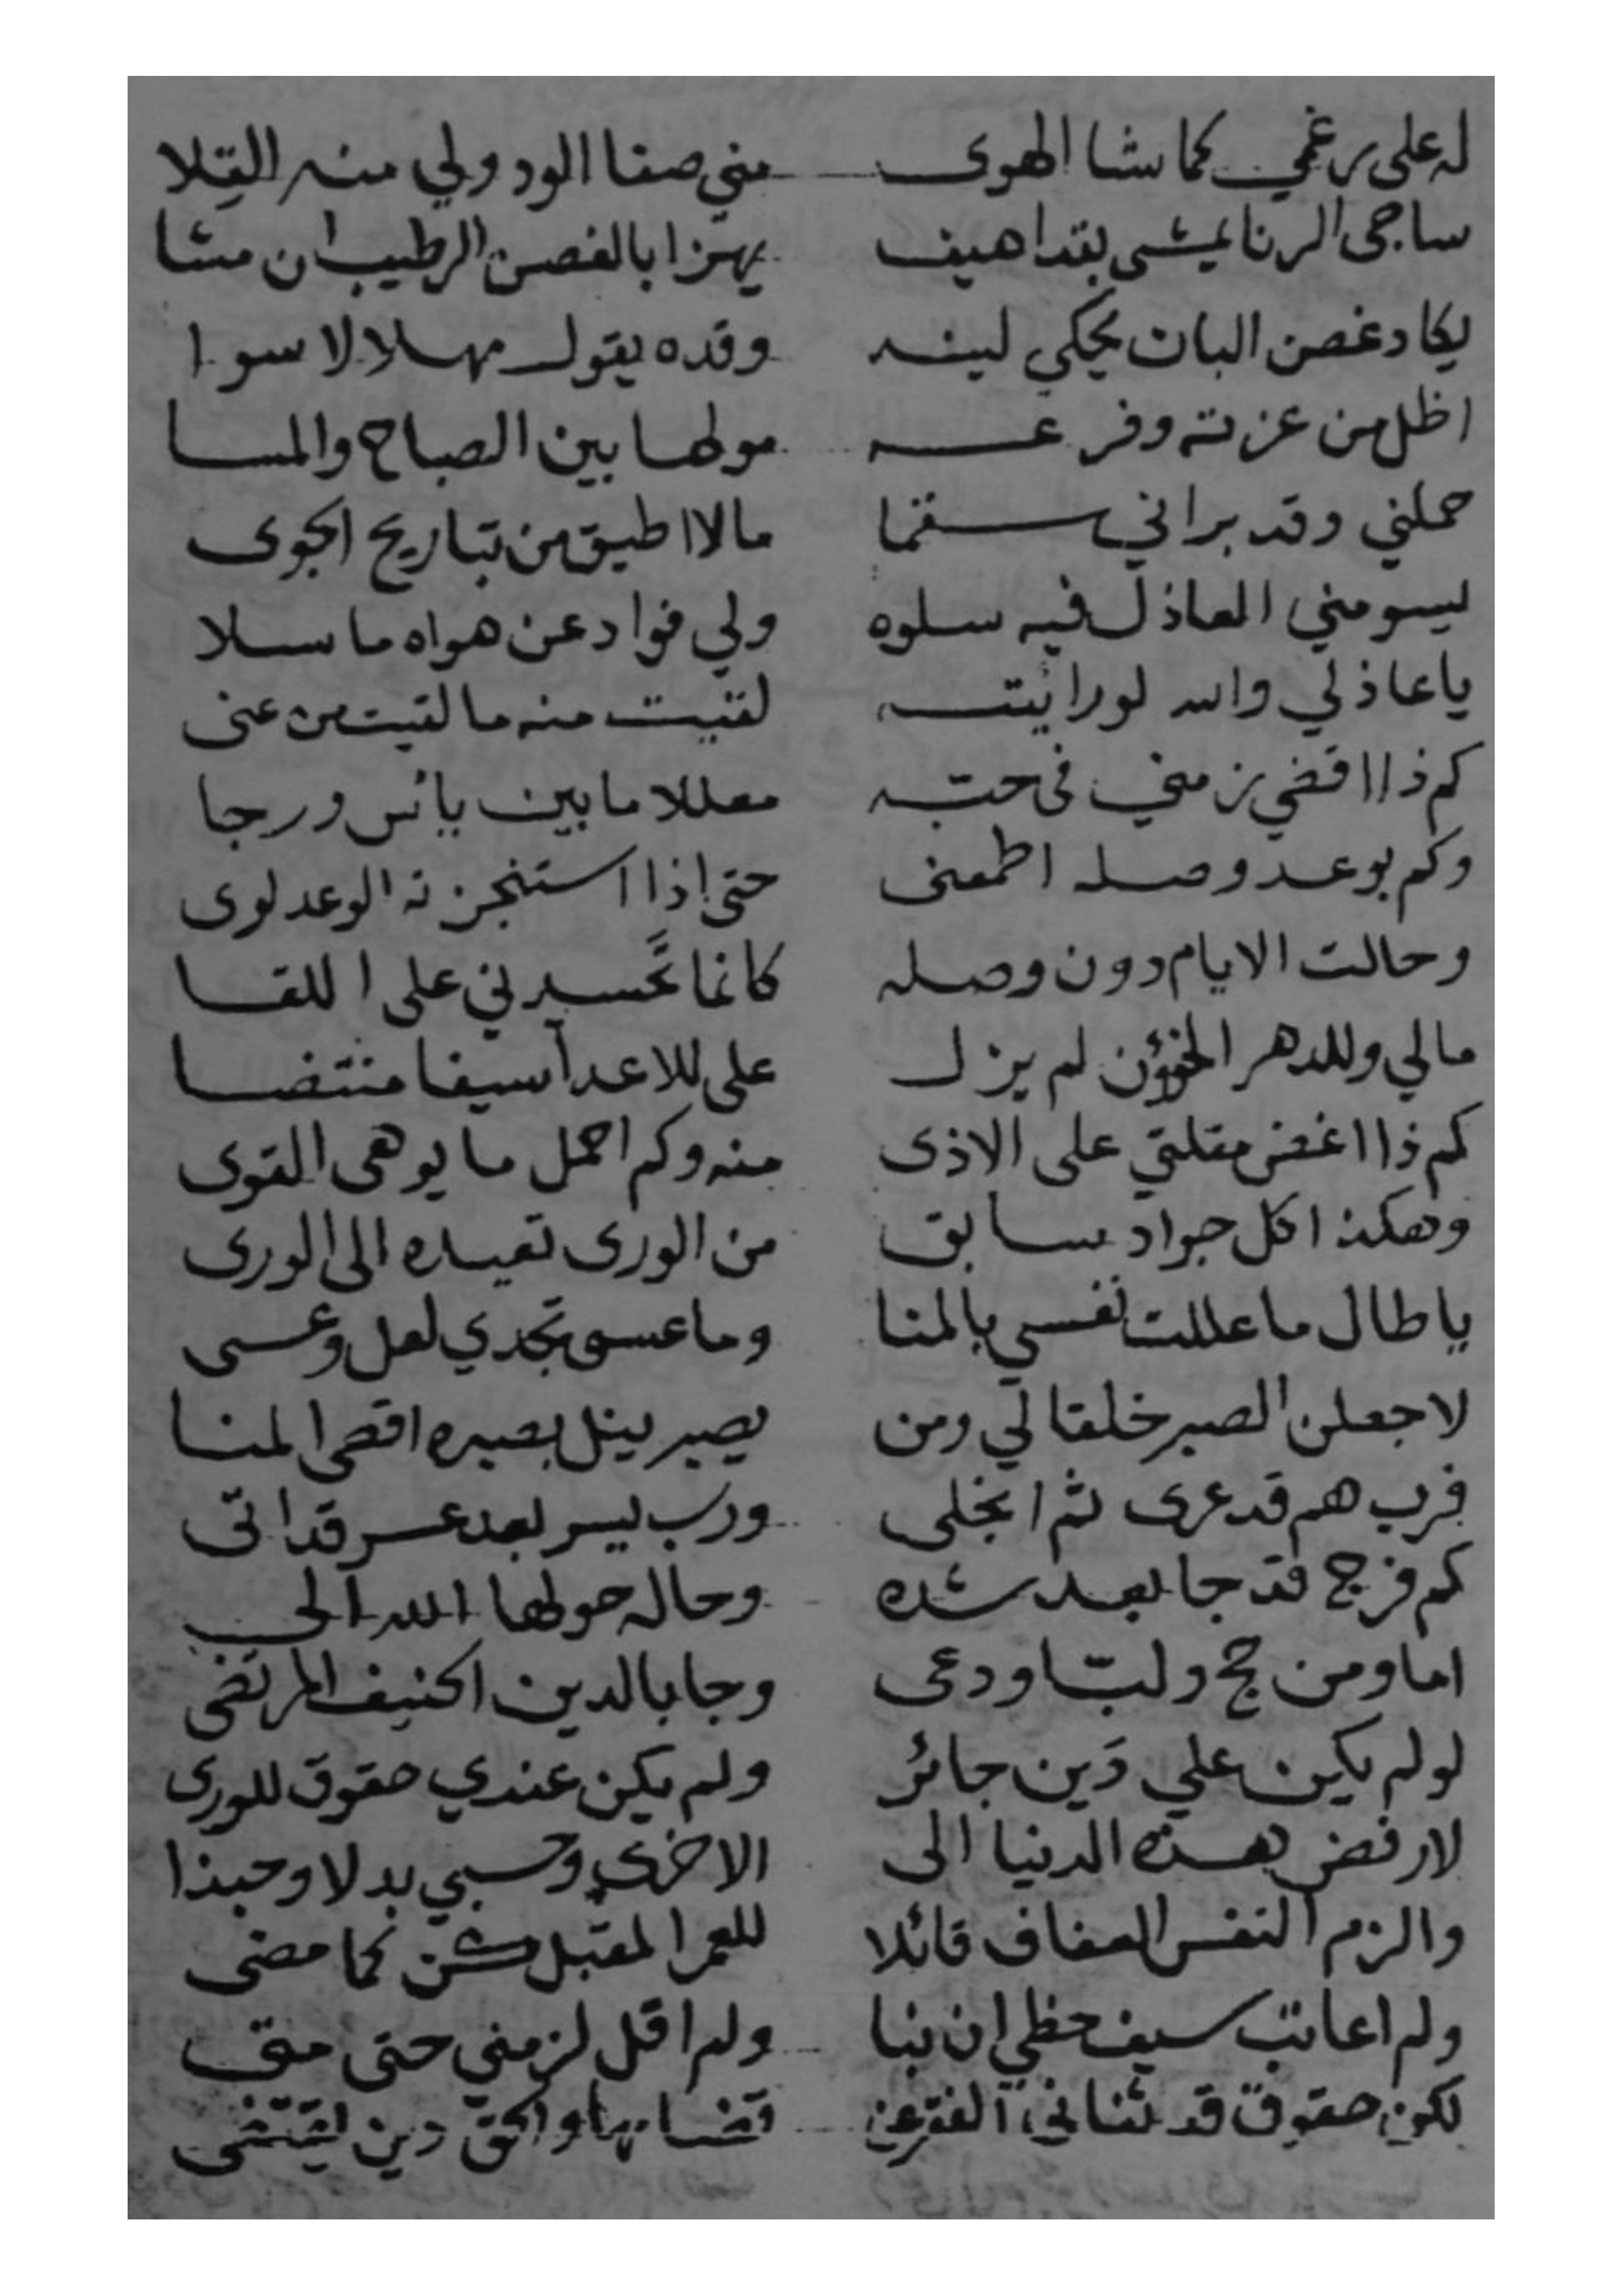 له على رغمي كما شا الهوى مني صفا الود ولي منه القلا
ساجى الرنا يمشى بقد اهيف يهزا بالغصن الرطيب ان مشا
يكاد غصن البان يحكي لينه وقده يقول مهلا لا سوا
اظل من عزته وفرعه مولها بين الصباح والمسا
حملني وقد براني سقما مالا اطيق من تباريح الجوى
يسومني العاذل فيه سلوه ولي فواد عن هواه ما سلا
يا عاذلي والله لو رائيته لقيت منه ما لقيت من عنى
كم ذا اقضي زمني فى حبّه معللا ما بين يائس ورجا
وكم بوعد وصله اطمعنى حتى اذا استنجزته الوعد لوى
وحالت الايام دون وصله كانما تحسدني على اللقا
مالي وللدهر الخؤون لم يزل على للاعدآ سيفا منتضا
كم ذا اغض مقلتي على الاذى منه وكم احمل ما يوهى القوى
وهكذا كل جواد سابق من الورى تعيده الى الورى
يا طال ما عللت نفسي بالمنا وما عسى تجدي لعل وعسى
لاجعلن الصبر خلقا لي ومن يصبر ينل بصبره اقصى المنا
فرب هم قد عرى ثم انجلى ورب يسر بعد عسر قد اتى
كم فرج قد جا بعد شده وحاله حولها الله الى
اما ومن حج ولبّا ودعى وجا بالدين الحنيف المرتضى
لو لم يكن علي دَين جائر ولم يكن عندي حقوق للورى
لارفض هذه الدنيا الى الاخرى وحسبي بدلا وحبذا
والزم النفس العفاف قائلا للعمر المقبل كن كما مضى
ولم اعاتب سيف حظي ان نبا ولم اقل لزمني حتى متى
لكن حقوق قد ثناني الفقر عن قضائها والحق دين يقتضى